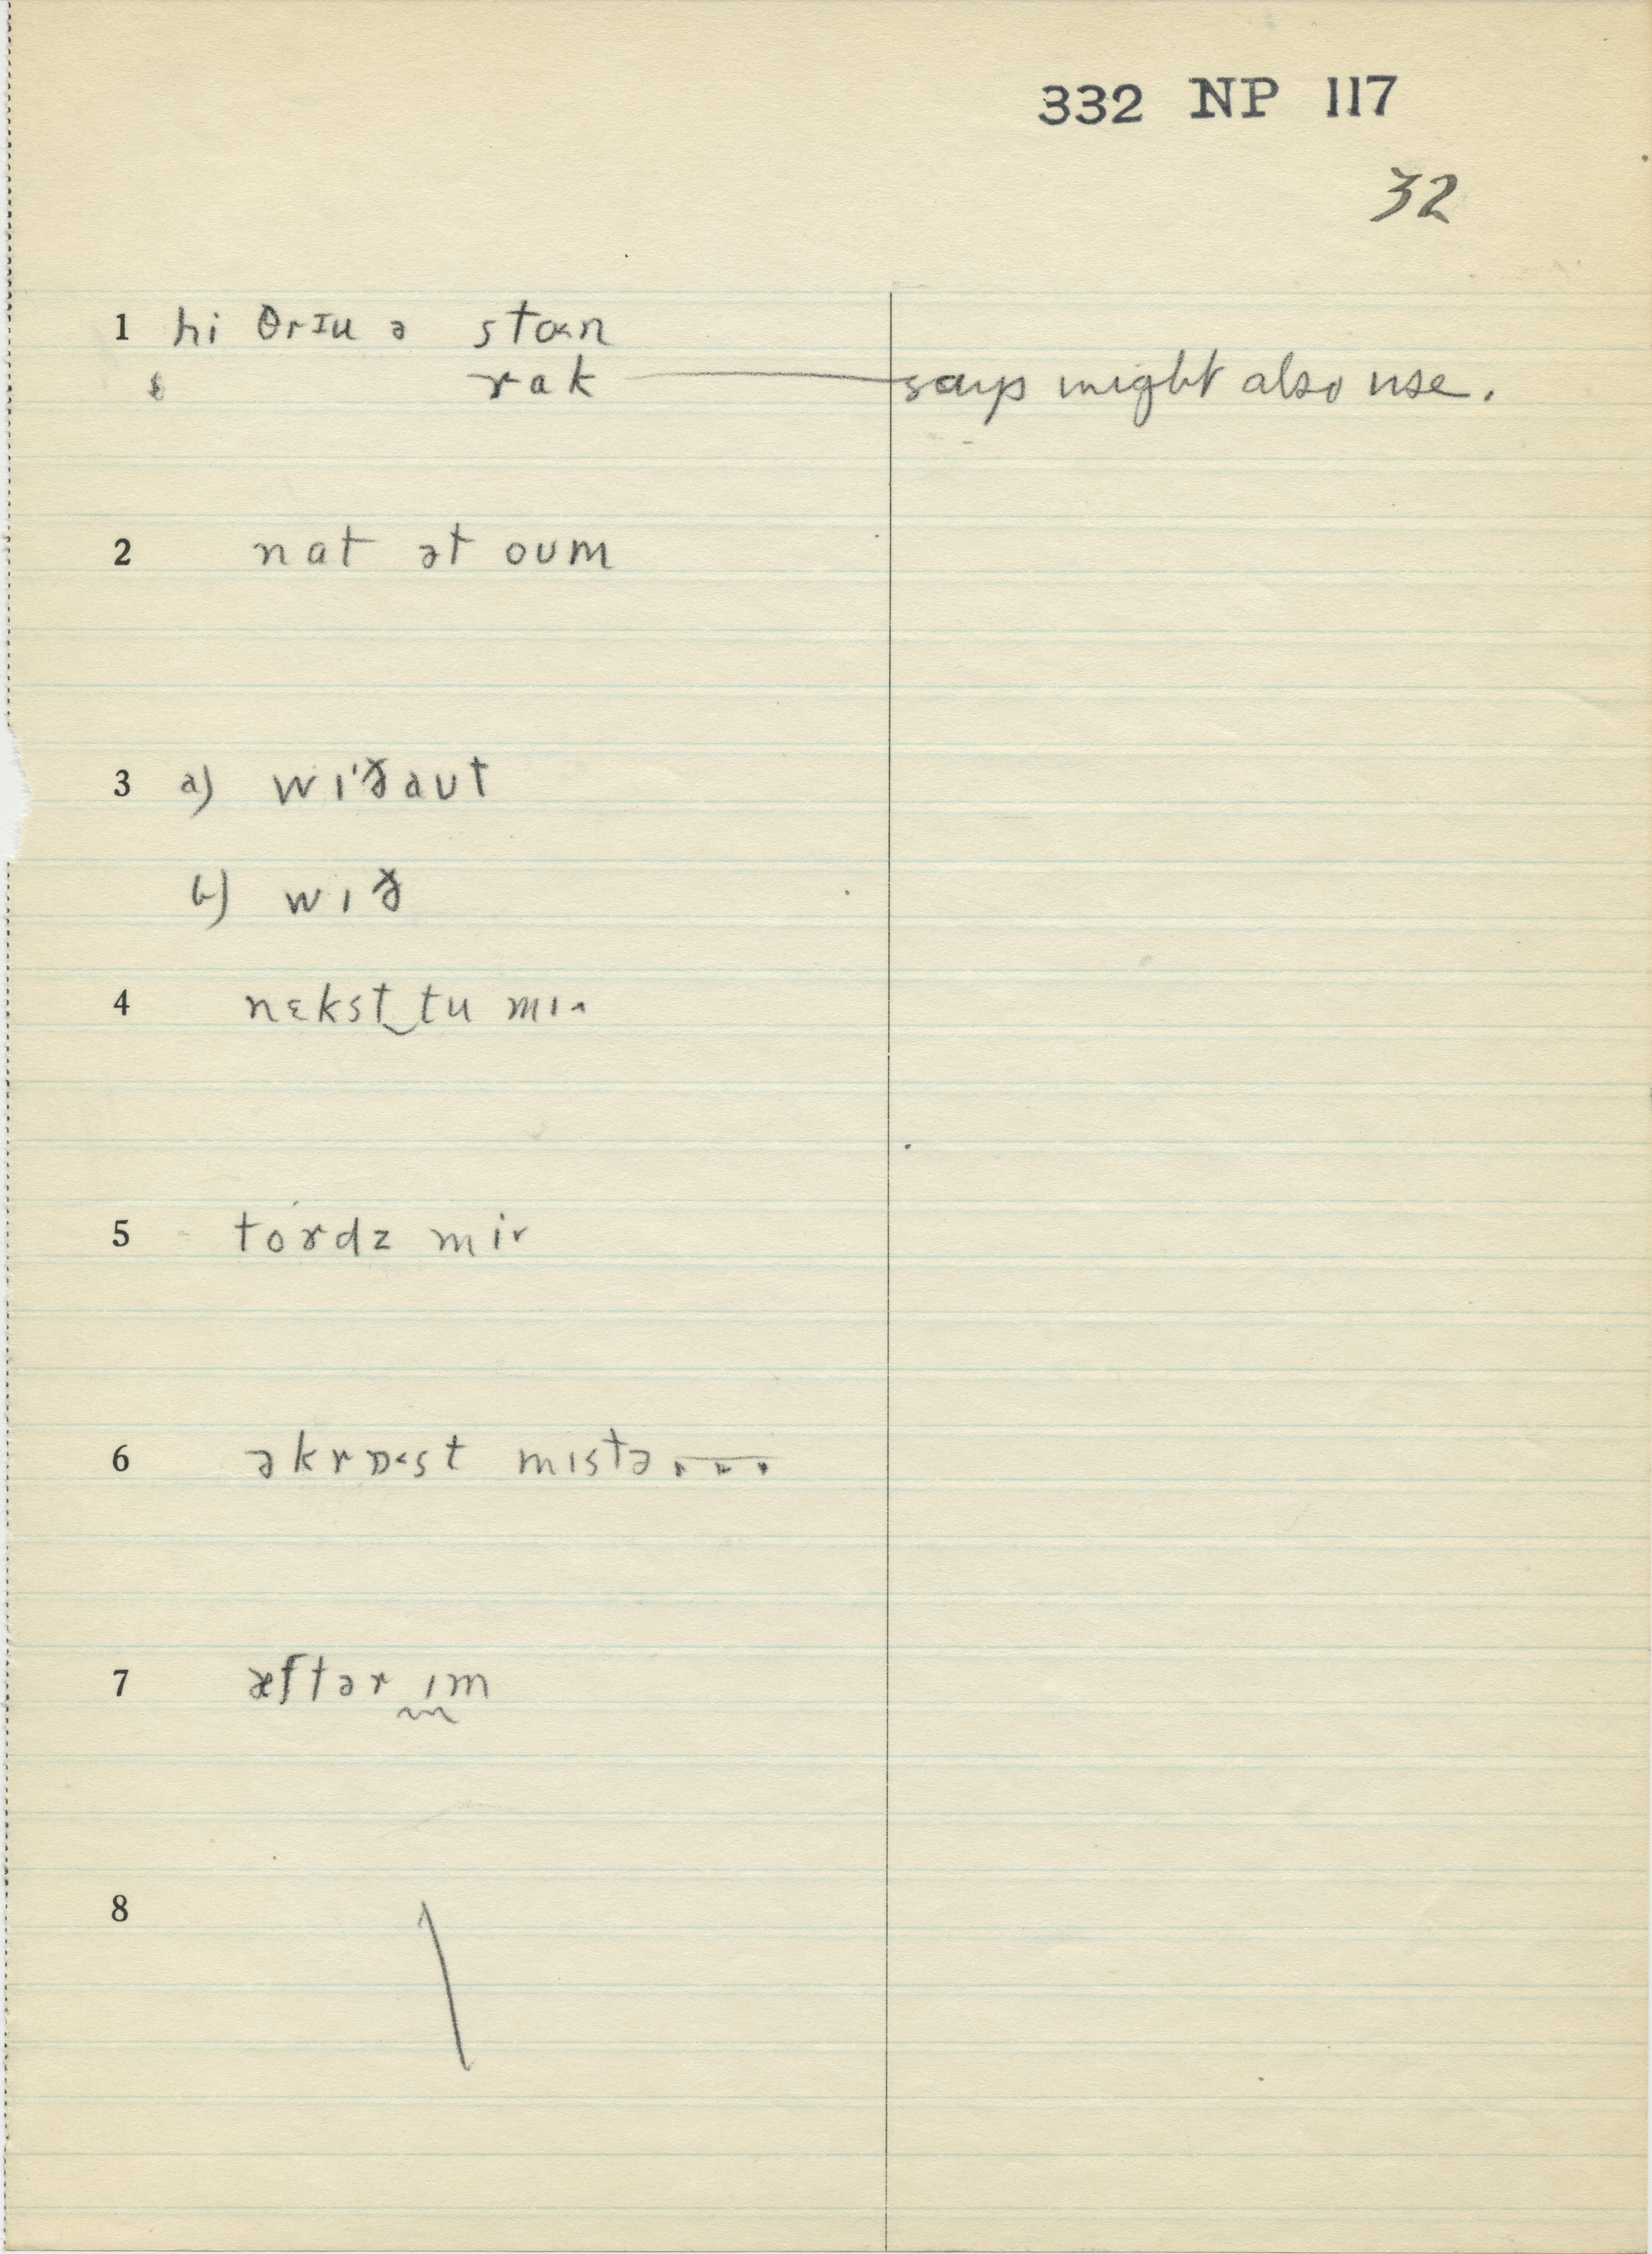 332 NP 117
32
1 hi θrɪu ə stoʌn
rak — says might also use.
2 nat ət oum
3 a) wɪ'ðaut
b) wɪð
4 nɛkst‿tu mɪ˄
5 tordz mir
6 əkrɒ˂st mɪstə...
7 æftər ɪm
8